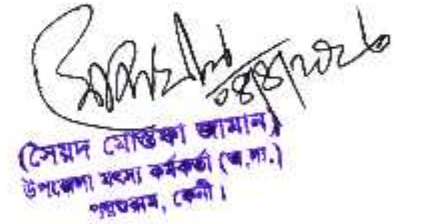 ০৪/৪/২০২৬
(সৈয়দ মোস্তফা জামান)
উপজেলা মৎস্য কর্মকর্তা (অ.দা.)
পরশুরাম, ফেনী।